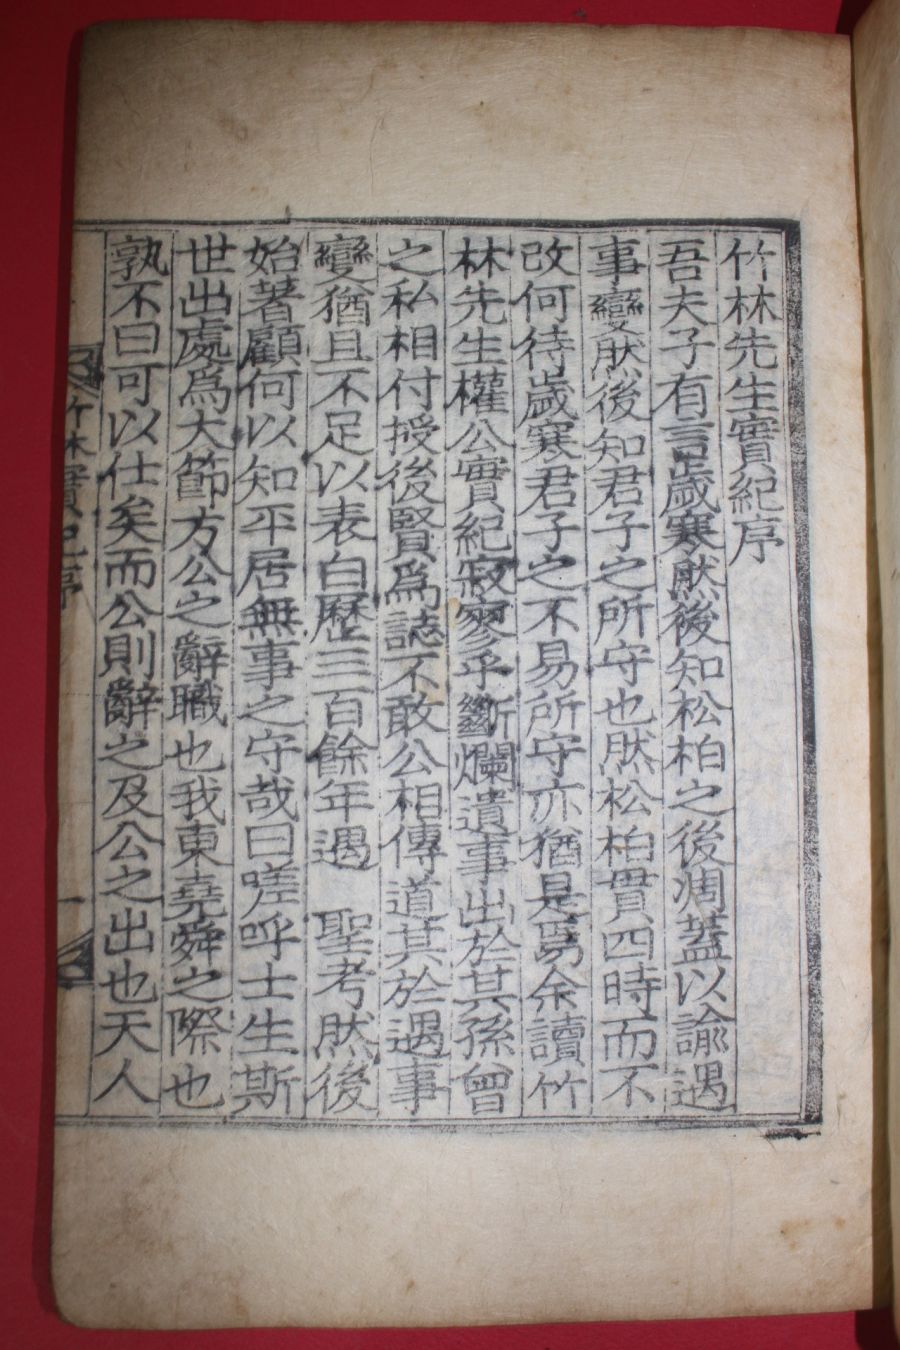 竹林先生實紀序
吾夫子有言歲寒然後知松柏之後凋蓋以諭遇
事變然後知君子之所守也然松柏貫四時而不
改何待歲寒君子之不易所守亦猶是焉余讀竹
林先生權公實紀寂寥乎斷爛遺事出於其孫曾
之私相付授後賢爲誌不敢公相傳道其於遇事
變猶且不足以表白歷三百餘年遇　聖考然後
始著顧何以知平居無事之守哉曰嗟呼士生斯
世出處爲大節方公之辭職也我東堯舜之際也
孰不曰可以仕矣而公則辭之及公之出也天人
竹林實紀序 一